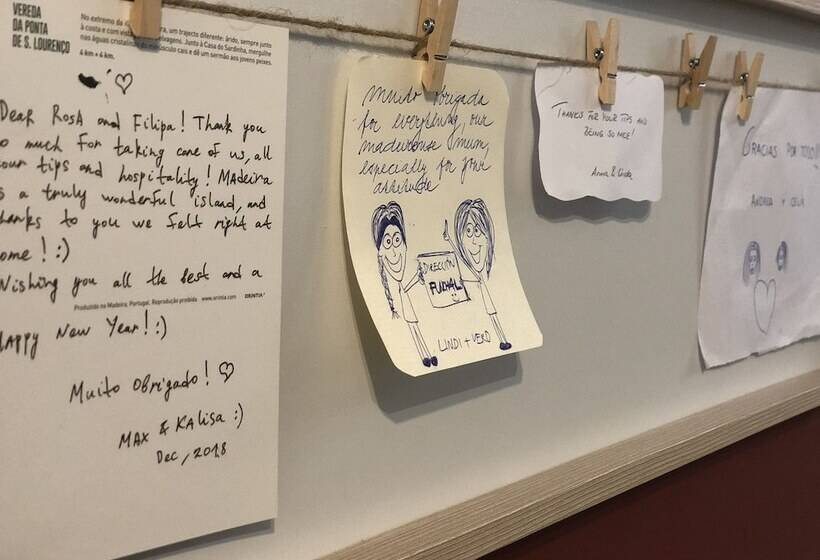 VEREDA
DA PONTA
DE S. LOURENÇO
No extremo da
, um trajeto diferente: árido, sempre junto
à costa e com vista
selvagens. Junto à Casa do Sardinha, mergulhe
nas águas cristalinas do minúsculo cais e dê um sermão aos jovens peixes.
4 km + 4 km.
Dear Rosa and Filipa! Thank you
so much for taking care of us, all
your tips and hospitality! Madeira
is a truly wonderful island, and
thanks to you we felt right at
home! :)
Wishing you all the best and a
Produzido na Madeira, Portugal. Reprodução proibida www.orinita.com
Happy New Year! :)
Muito Obrigado! ♡
MAX & Kalisa :)
Dec, 2018
Muito obrigada
for everything, our
madeirense
especially for your
DIRECCIÓN
FUCHAL
LINDI + VERO
THANKS FOR YOUR TIPS AND
BEING SO NICE!
Anna &
GRACIAS POR TODO!!